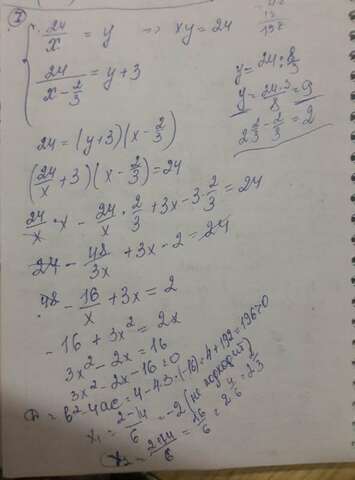 7
24/x = y => xy = 24
24/(x - 2/3) = y + 3
y = 24 : 8/3
y = 24·3/8 = 9
2 2/3 - 2/3 = 2
24 = (y+3)(x - 2/3)
(24/x + 3)(x - 2/3) = 24
24/x · x - 24/x · 2/3 + 3x - 3·2/3 = 24
24 - 48/3x + 3x - 2 = 24
- 16/x + 3x = 2
-16 + 3x² = 2x
3x² - 2x = 16
3x² - 2x - 16 = 0
D = b² - 4ac = 4 - 4·3·(-16) = 4 + 192 = 196 > 0
x₁ = (2-14)/6 = -2 (не подходит)
x₂ = (2+14)/6 = 16/6 = 2 4/6 = 2 2/3